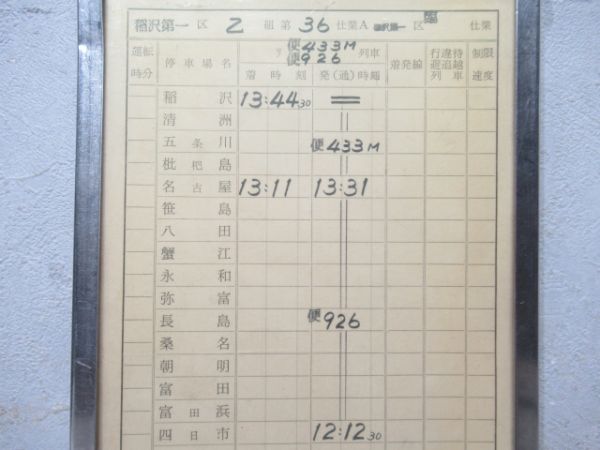 稲沢第一 区 乙 組第 36 仕業A 稲沢第一 区 臨 仕業
運転時分 停車場名 列車 便433M 便926 着発線 行違待避追越列車 制限速度
着時刻 発(通)時刻
稲沢 13:44 30 =
清洲
五条川 便433M
枇杷島
名古屋 13:11 13:31
笹島
八田
蟹江
永和
弥富
長島 便926
桑名
朝明
富田
富田浜
四日市 12:12 30